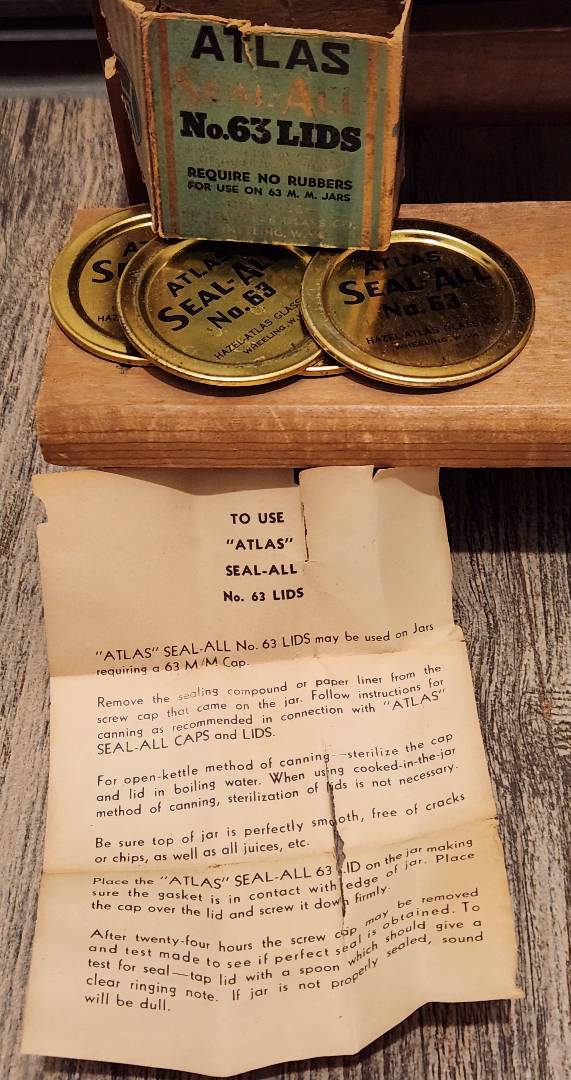 ATLAS
SEAL-ALL
No.63 LIDS
REQUIRE NO RUBBERS
FOR USE ON 63 M. M. JARS
WHEELING, W.VA.
ATLAS
SEAL-ALL
No.63
HAZEL-ATLAS GLASS
WHEELING, W.
ATLAS
SEAL-ALL
No.63
HAZEL-ATLAS GLASS CO.
WHEELING, W. VA.
TO USE
"ATLAS"
SEAL-ALL
No. 63 LIDS
"ATLAS" SEAL-ALL No. 63 LIDS may be used on Jars
requiring a 63 M/M Cap.
Remove the sealing compound or paper liner from the
screw cap that came on the jar. Follow instructions for
canning as recommended in connection with "ATLAS"
SEAL-ALL CAPS and LIDS.
For open-kettle method of canning—sterilize the cap
and lid in boiling water. When using cooked-in-the-jar
method of canning, sterilization of lids is not necessary.
Be sure top of jar is perfectly smooth, free of cracks
or chips, as well as all juices, etc.
Place the "ATLAS" SEAL-ALL 63 LID on the jar making
sure the gasket is in contact with edge of jar. Place
the cap over the lid and screw it down firmly.
After twenty-four hours the screw cap may be removed
and test made to see if perfect seal is obtained. To
test for seal—tap lid with a spoon which should give a
clear ringing note. If jar is not properly sealed, sound
will be dull.